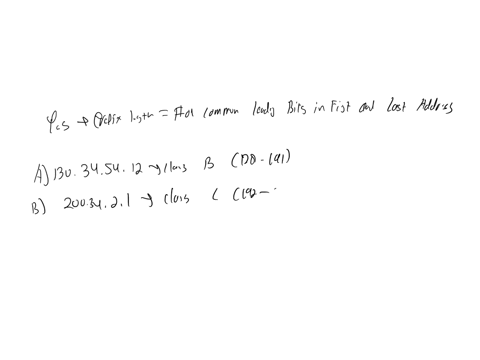 Yes → Prefix length = # of common leading Bits in First and Last Address
A) 130.34.54.12 → class B (128-191)
B) 200.34.2.1 → class C (192-